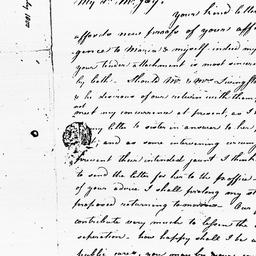 My dr. Mr. Jay,
your kind letter
affords new proofs of your aff
gance to Maria & myself indeed my
your tender attachment is most sincere
by both. Should Mr. & Mrs. Livingst
be desirous of our return with them,
not
meet my concurrence at present, as I
my letter to sister in answer to her,
and as some intervening circum
prevent their intended jaunt I think
to send the letter for her to the post office
of your advice I shall prolong my st
proposed returning tomorrow. Our
contribute very much to lessen the
separation. how happy shall I be
public cares, you may